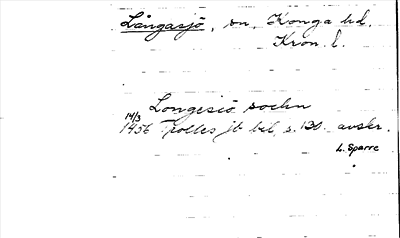 Långasjö, sn, Konga hd.
Kron. l.
Longesiö sochn
14/3
1456 Trolles jb bil, s. 130. avskr.
L. Sparre